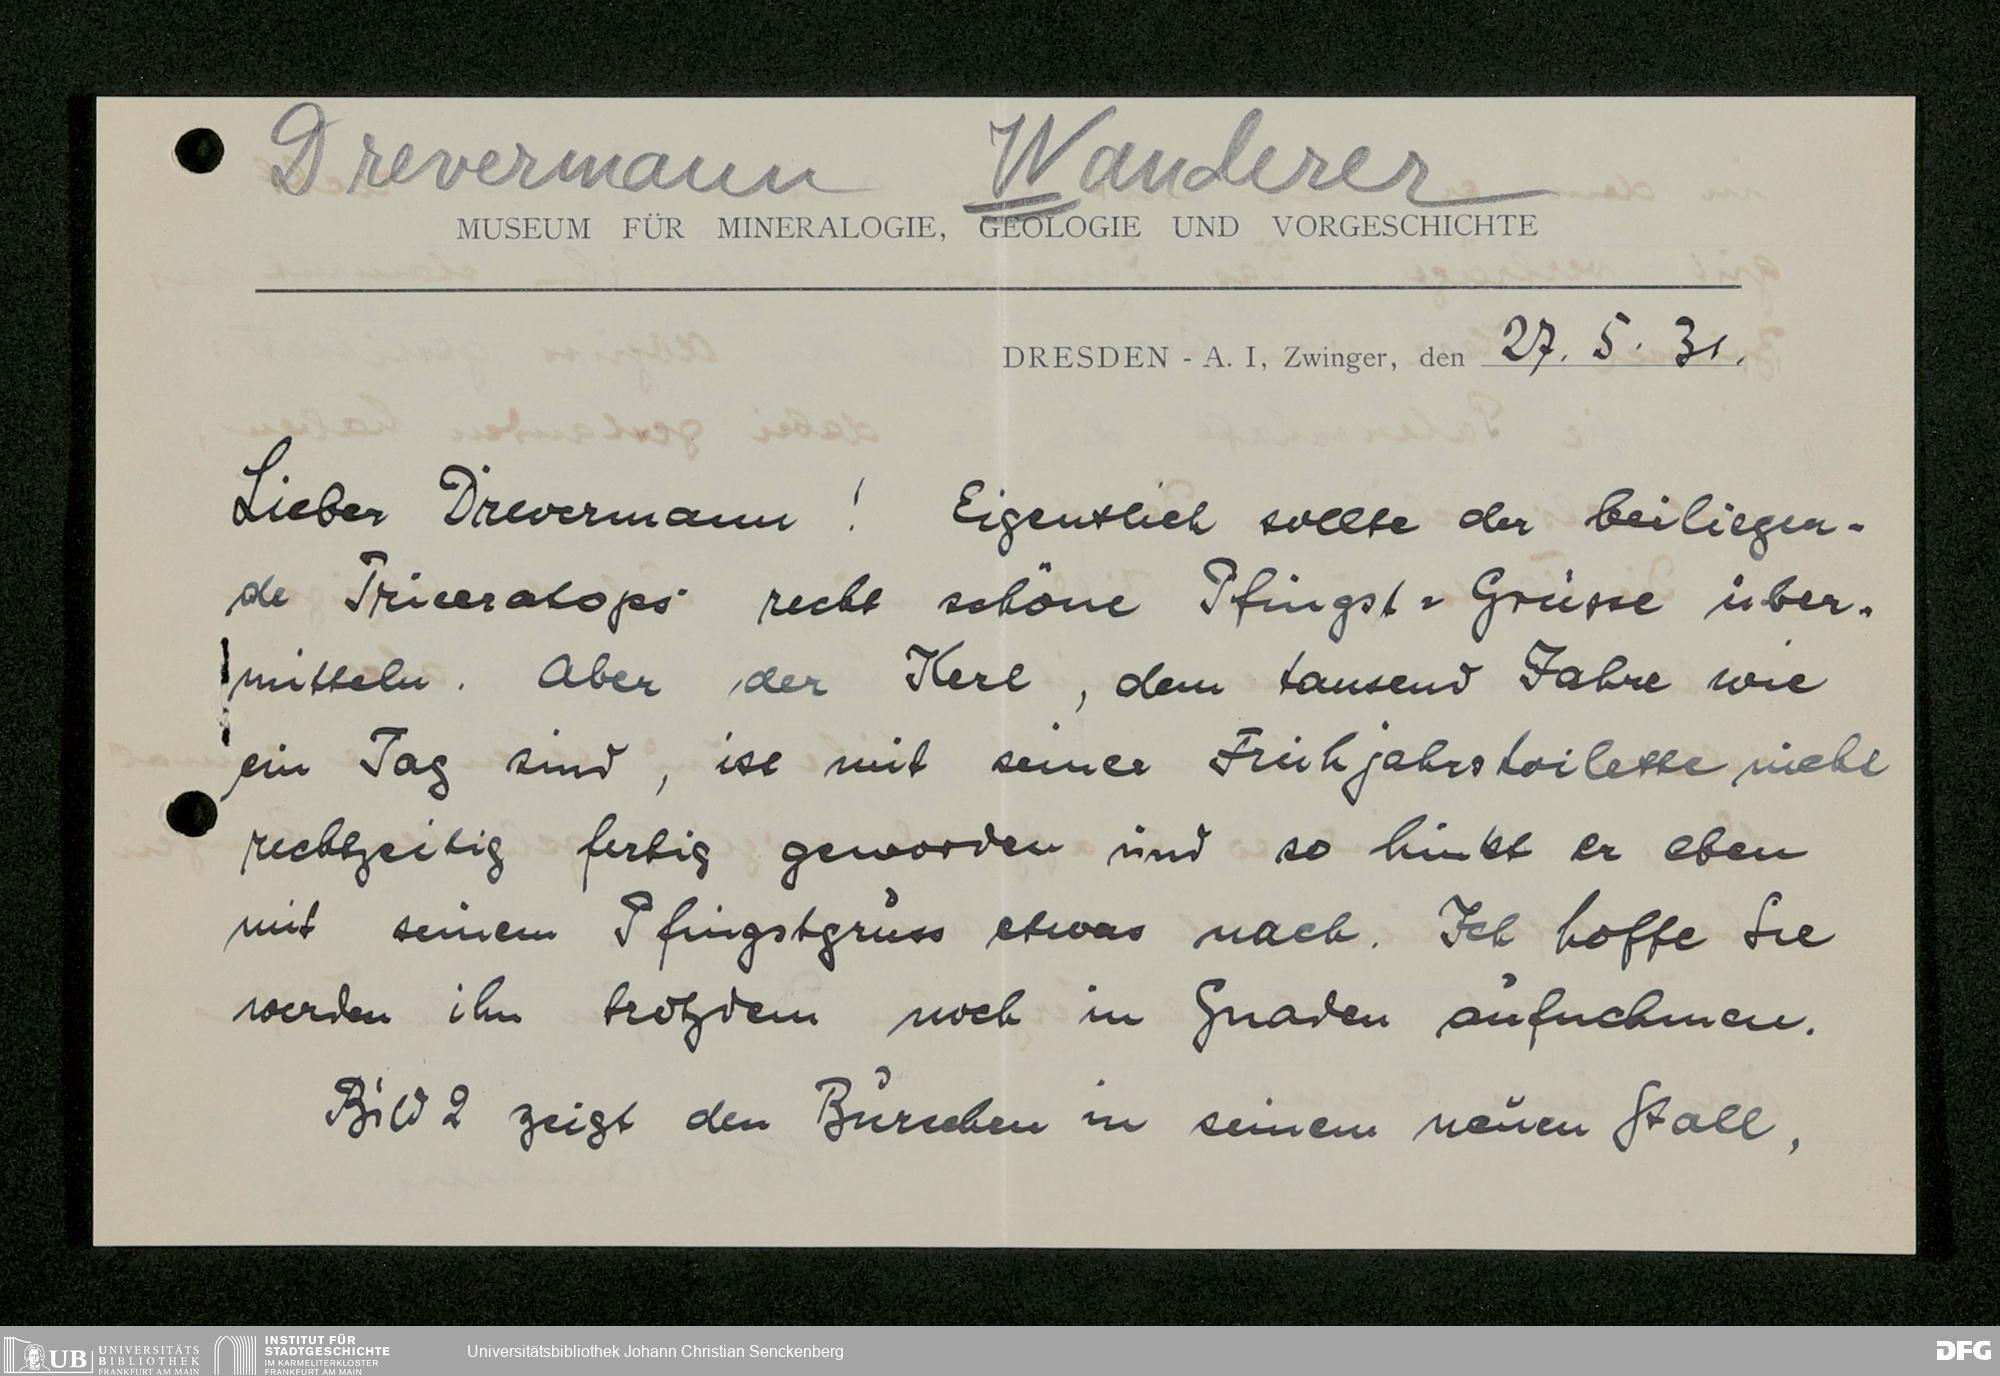 Drevermann Wanderer
MUSEUM FÜR MINERALOGIE, GEOLOGIE UND VORGESCHICHTE
DRESDEN - A. I, Zwinger, den 27. 5. 31.
Lieber Drevermann ! Eigentlich sollte der beiliegen-
de Triceratops recht schöne Pfingst-Grüsse über-
mitteln. Aber der Kerl, dem tausend Jahre wie
ein Tag sind, ist mit seiner Frühjahrstoilette nicht
rechtzeitig fertig geworden und so hinkt er eben
mit seinem Pfingstgruss etwas nach. Ich hoffe Sie
werden ihn trotzdem noch in Gnaden aufnehmen.
Bild 2 zeigt den Burschen in seinem neuen Stall,
UB UNIVERSITÄTS
BIBLIOTHEK
FRANKFURT AM MAIN
INSTITUT FÜR
STADTGESCHICHTE
IM KARMELITERKLOSTER
FRANKFURT AM MAIN
Universitätsbibliothek Johann Christian Senckenberg
DFG